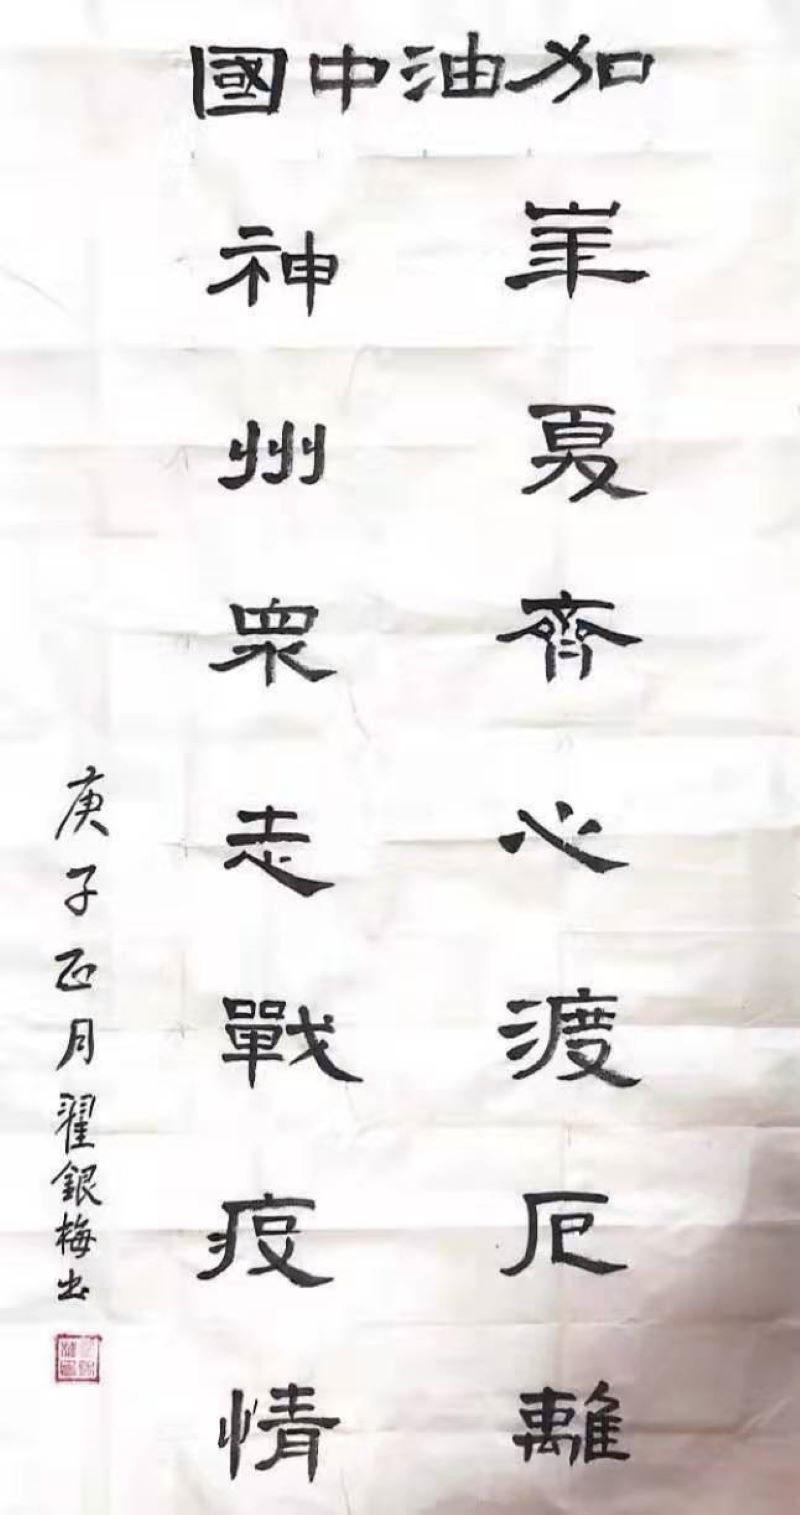 加油中國
華夏齊心渡厄離
神州眾志戰疫情
庚子正月翟銀梅书